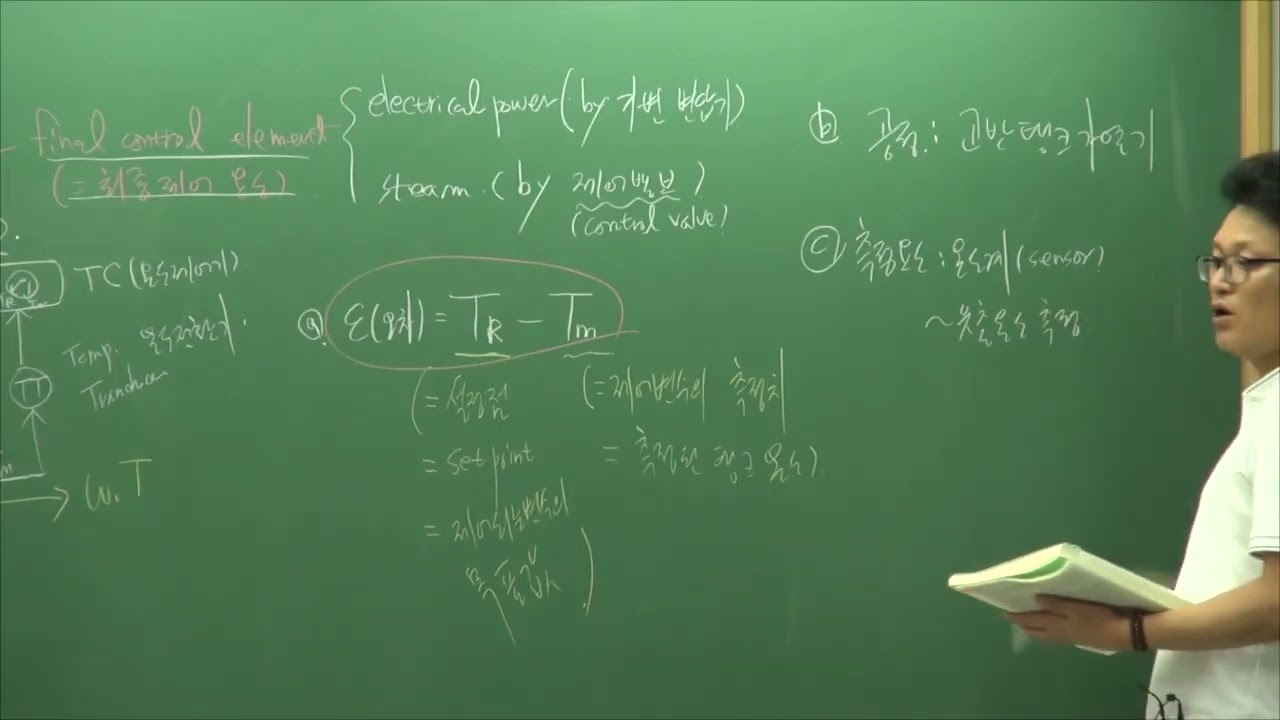 final control element
(= 최종제어 요소)
electrical power (by 가변 변압기)
steam. (by 제어밸브)
(control valve)
TC (온도제어기)
Temp. 온도전환기.
TT
w. T
ⓐ ε(오차) = T_R - T_m
(= 설정점
= set point
= 제어되는변수의
목표값)
(= 제어변수의 측정치
= 측정된 탱크 온도)
ⓑ 공정 : 교반탱크가열기
ⓒ 측정요소 : 온도계 (sensor)
~유출온도 측정